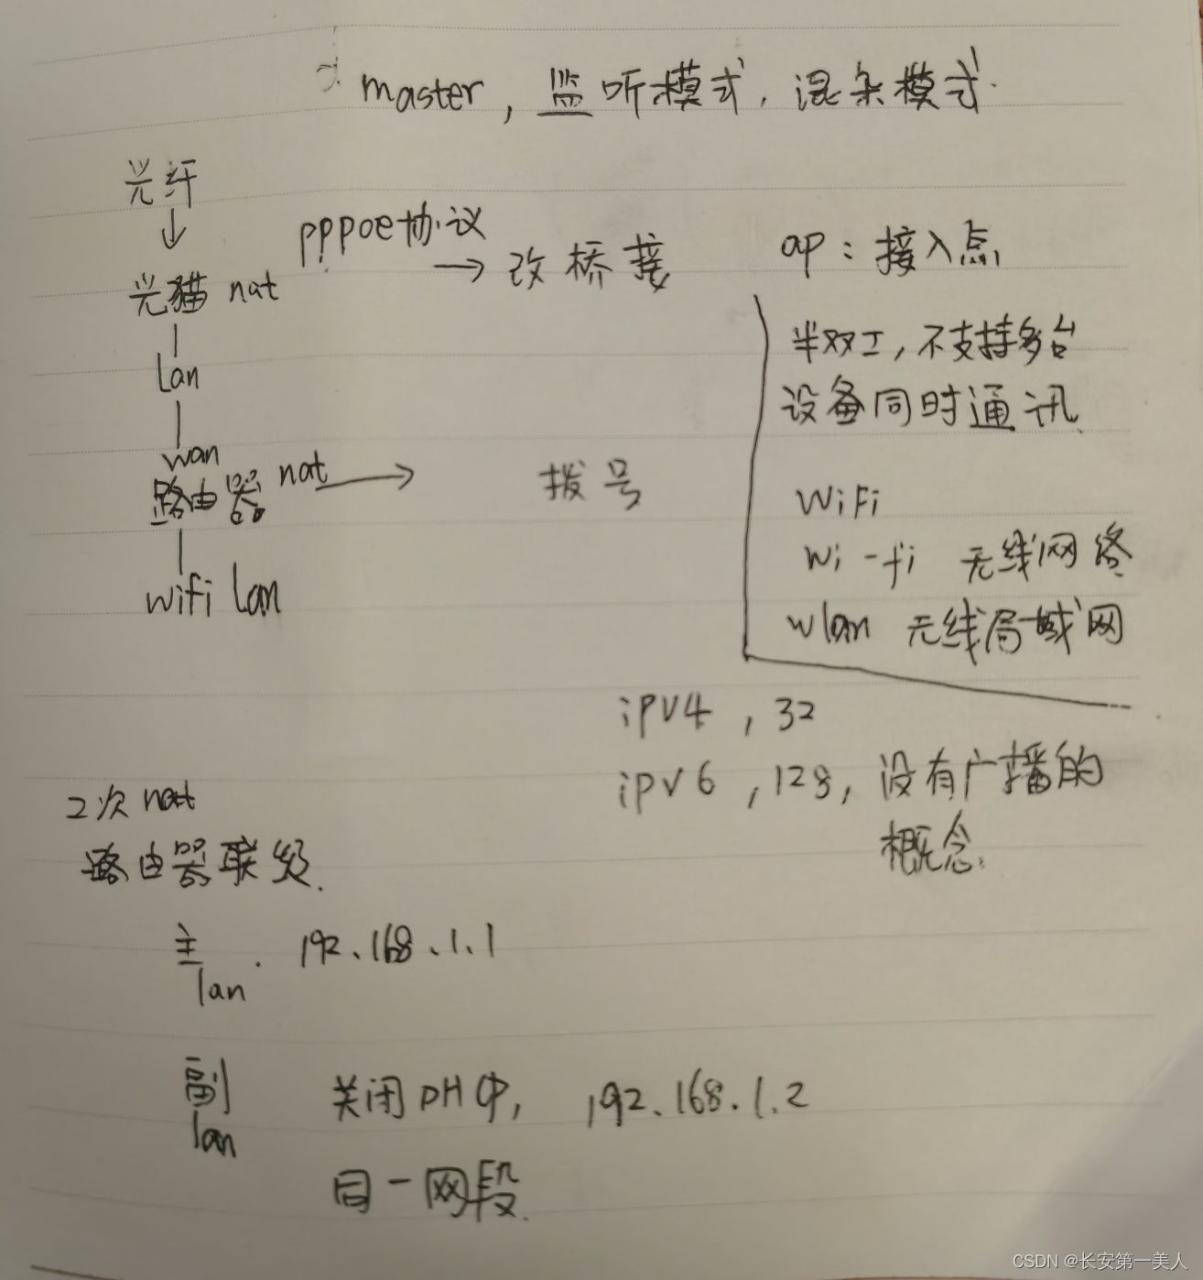 master，监听模式，混杂模式.
光纤
pppoe协议
光猫 nat → 改桥接
lan
wan
路由器 nat → 拨号
wifi lan
ap：接入点
半双工，不支持多台
设备同时通讯
WiFi
wi-fi 无线网络
wlan 无线局域网
ipv4，32
ipv6，128，没有广播的
概念.
2次nat
路由器联级.
主 . 192.168.1.1
lan
副 关闭DHCP，192.168.1.2
lan
同一网段.
CSDN @长安第一美人